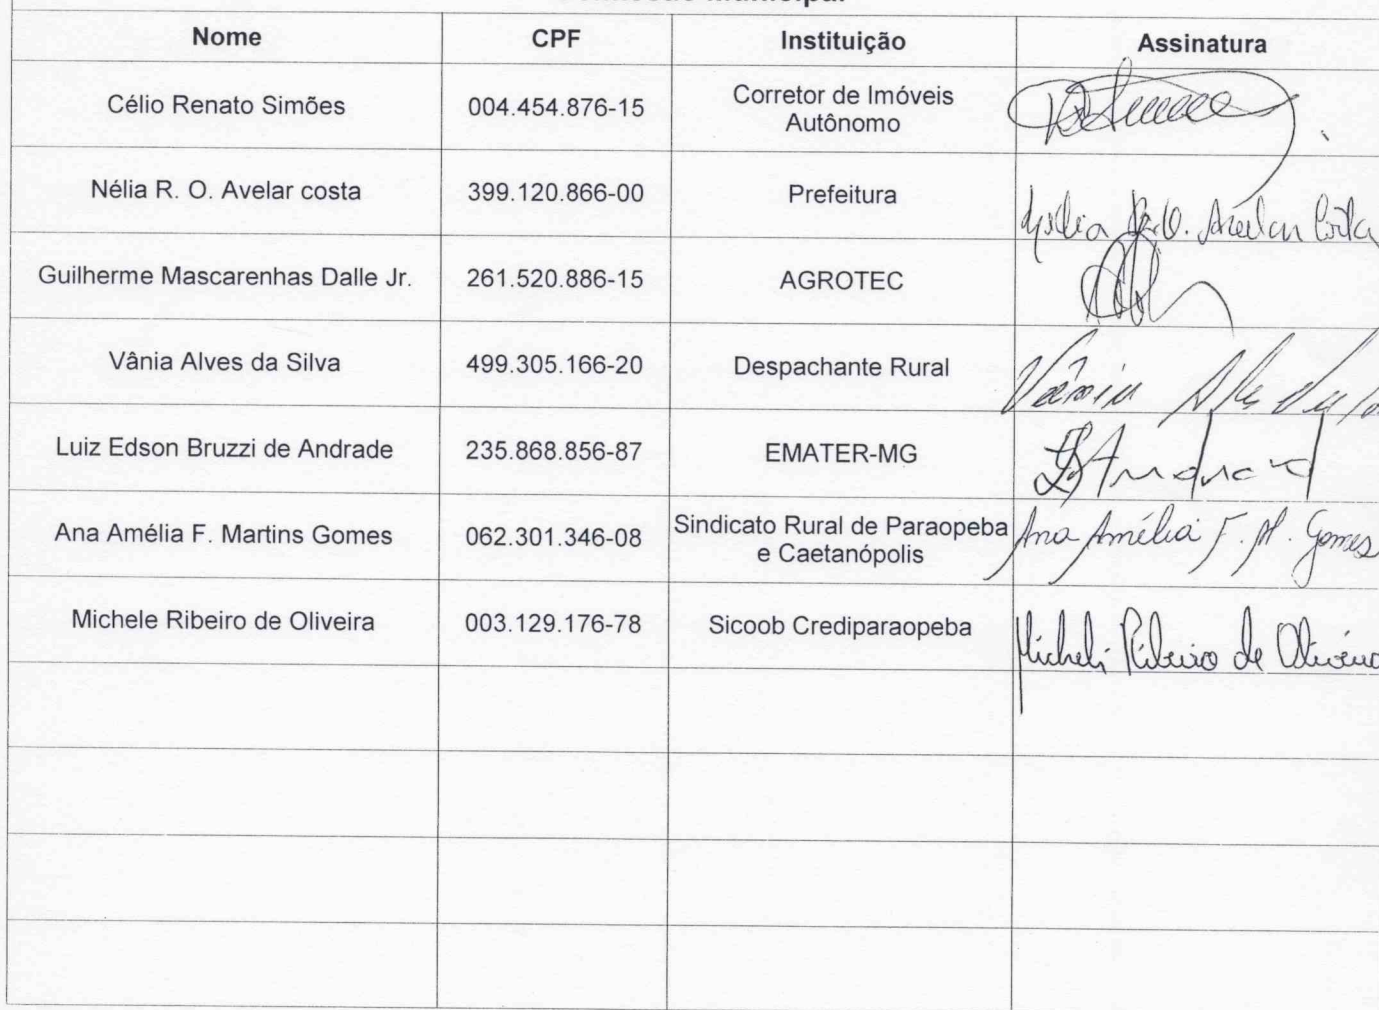 Nome CPF Instituição Assinatura
Célio Renato Simões 004.454.876-15 Corretor de Imóveis
Autônomo
Nélia R. O. Avelar costa 399.120.866-00 Prefeitura
Guilherme Mascarenhas Dalle Jr. 261.520.886-15 AGROTEC
Vânia Alves da Silva 499.305.166-20 Despachante Rural Vânia
Luiz Edson Bruzzi de Andrade 235.868.856-87 EMATER-MG
Ana Amélia F. Martins Gomes 062.301.346-08 Sindicato Rural de Paraopeba
e Caetanópolis Ana Amélia F. M. Gomes
Michele Ribeiro de Oliveira 003.129.176-78 Sicoob Crediparaopeba Michele Ribeiro de Oliveira